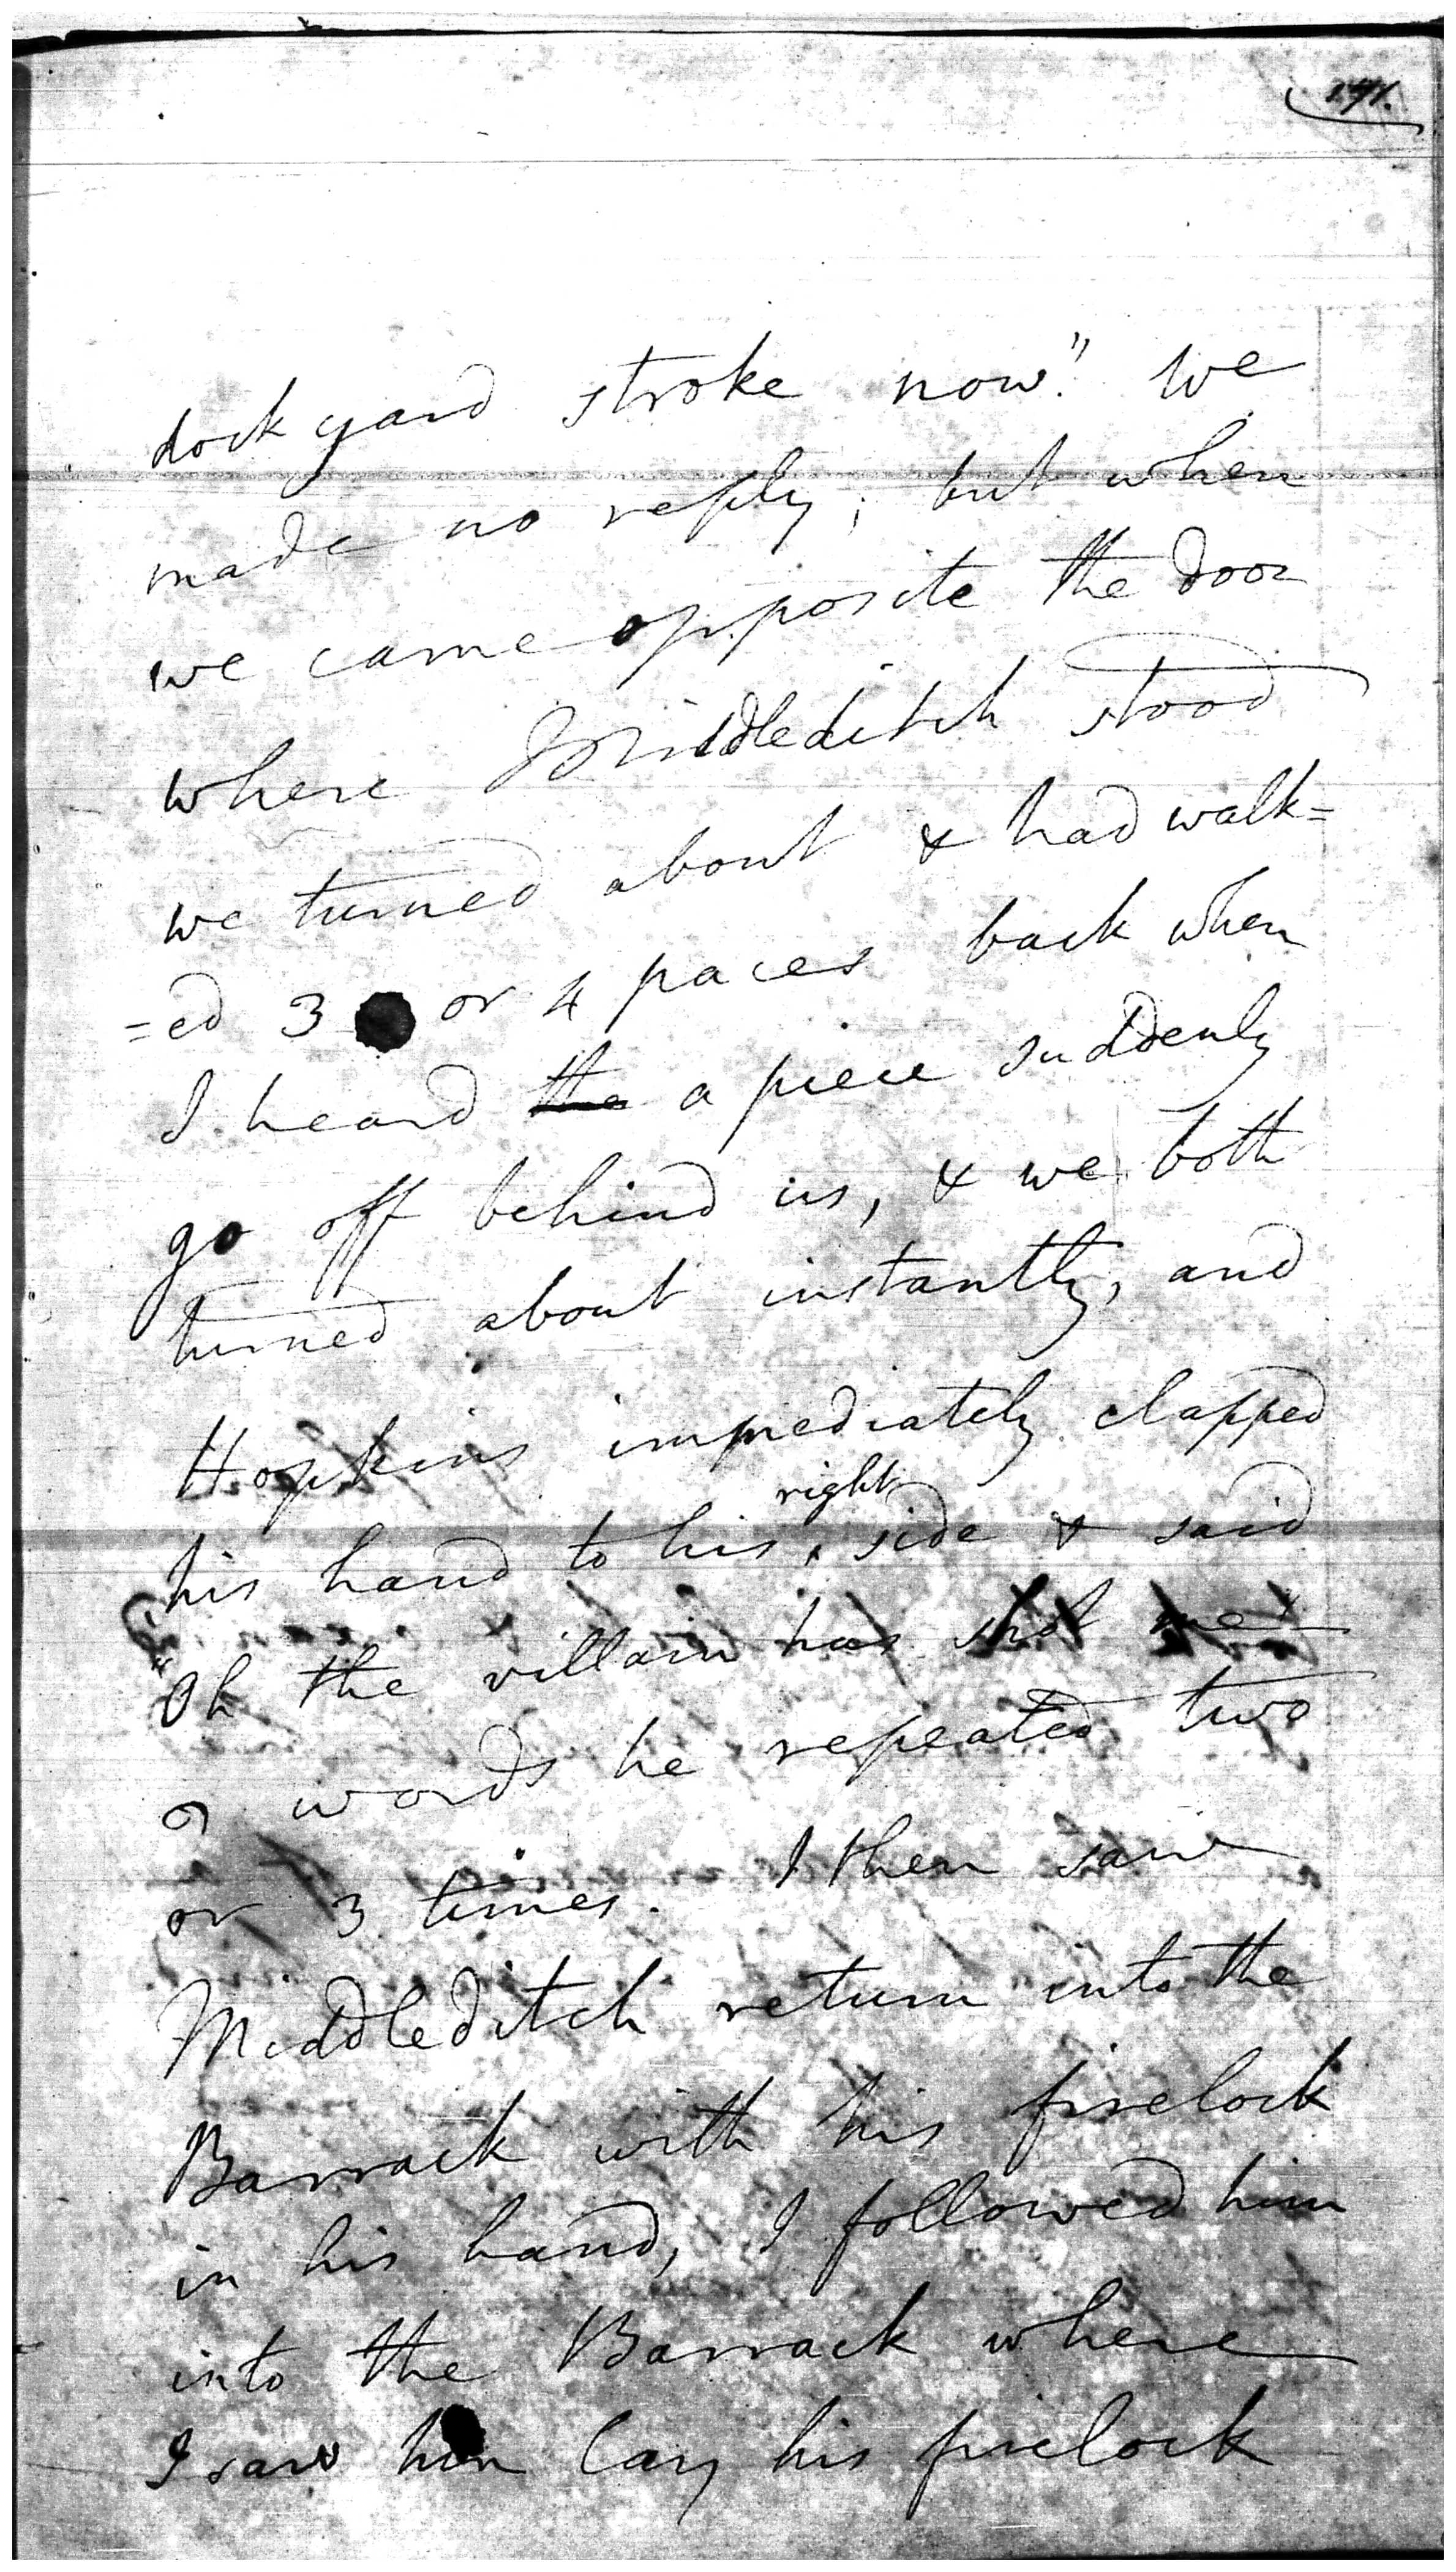 dock yard stroke now." We
made no reply; but when
we came opposite the door
where Middleditch stood
we turned about & had walk=
=ed 3 or 4 paces back when
I heard the a piece suddenly
go off behind us, & we both
turned about instantly, and
Hopkins immediately clapped
right
his hand to his ‸ side & said
"Oh the villain has shot me"
words he repeated two
or 3 times. I then saw
Middleditch return into the
Barrack with his firelock
in his hand, I followed him
into the Barrack where
I saw him lay his firelock